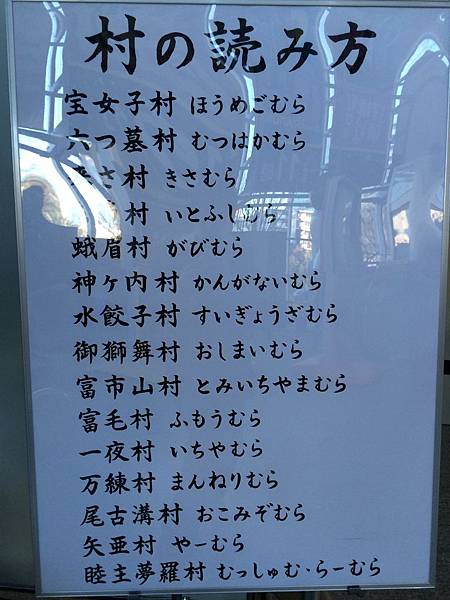 村の読み方
宝女子村 ほうめごむら
六つ墓村 むつはかむら
さ村 きさむら
村 いとふしむら
蛾眉村 がびむら
神ヶ内村 かんがないむら
水餃子村 すいぎょうざむら
御獅舞村 おしまいむら
富市山村 とみいちやまむら
富毛村 ふもうむら
一夜村 いちやむら
万練村 まんねりむら
尾古溝村 おこみぞむら
矢亜村 やーむら
睦主夢羅村 むっしゅむ・らーむら